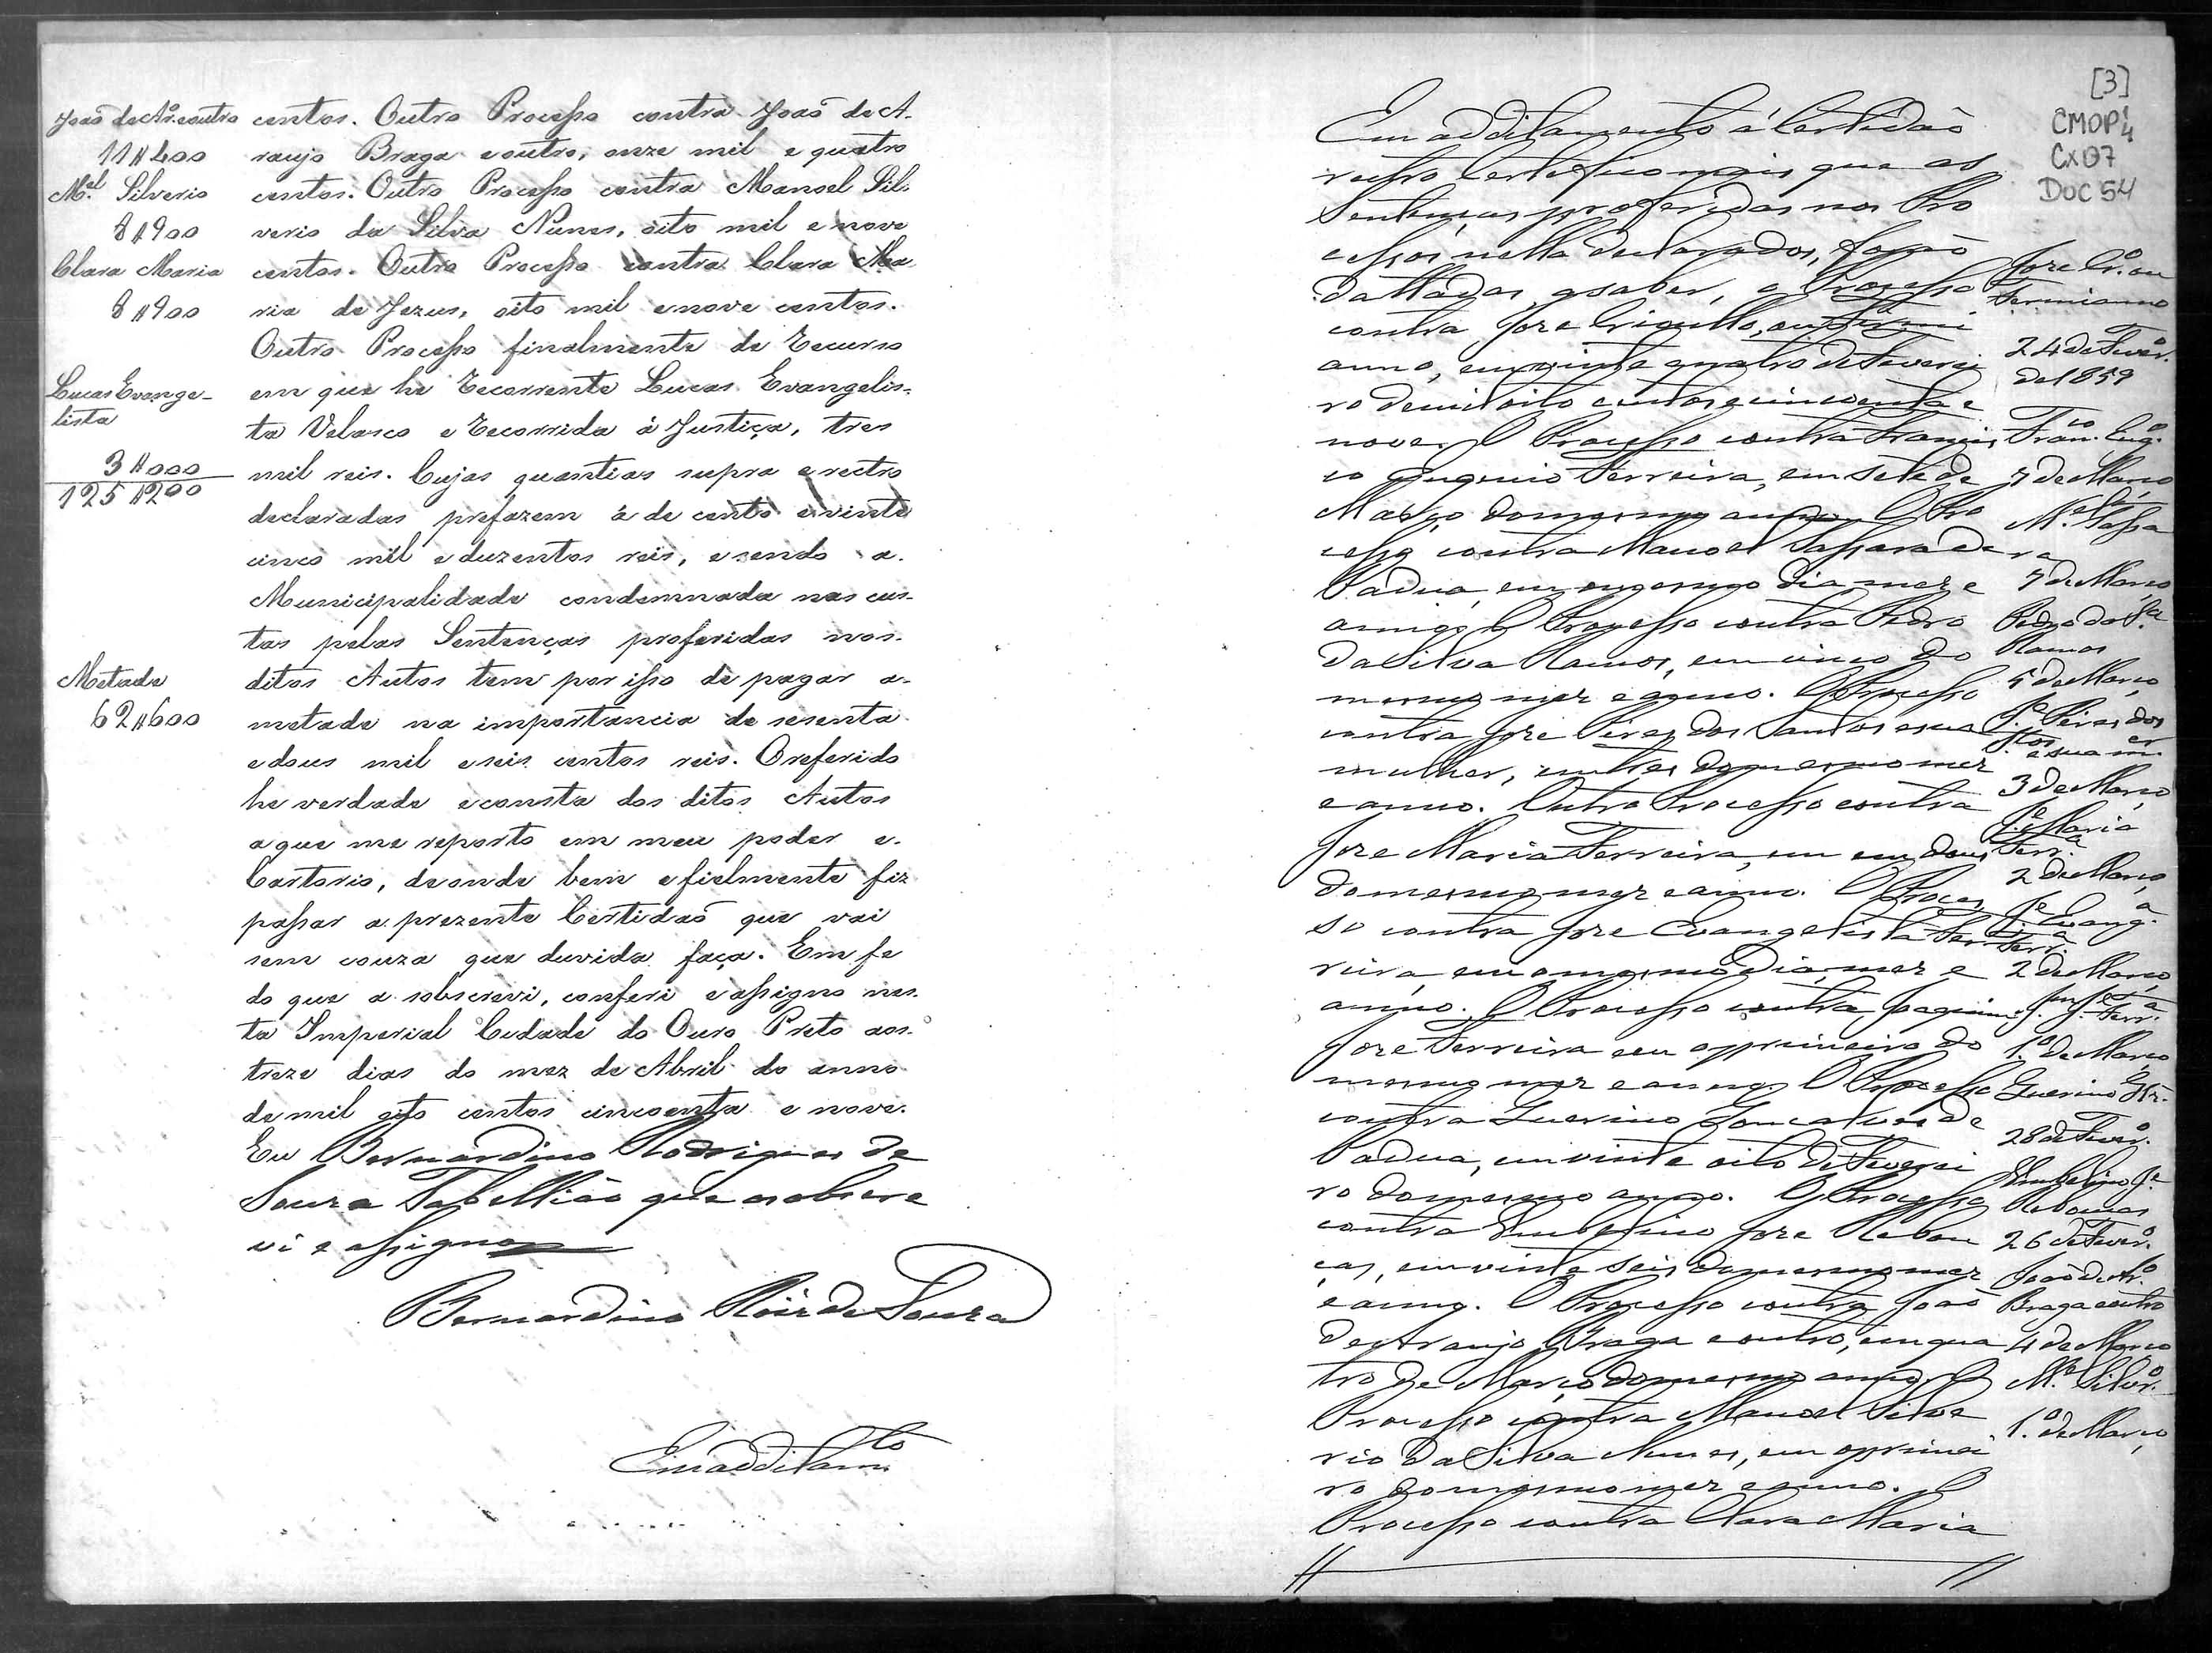 João de Ar.º e outro
11$400
M.el Silverio
8$900
Clara Maria
8$900
Lucas Evange-
lista
3$000
125$200
Metade
62$600
centos. Outro Processo contra João de A-
raujo Braga e outro, onze mil e quatro
centos. Outro Processo contra Manoel Sil-
verio da Silva Nunes, oito mil e nove
centos. Outro Processo contra Clara Ma-
ria de Jezus, oito mil e nove centos.
Outro Processo finalmente de Recurso
em que he Recorrente Lucas Evangelis-
ta Velasco e Recorrida á Justiça, tres
mil reis. Cujas quantias supra e rectro
declaradas prefazem á de cento e vinte
cinco mil e duzentos reis, e sendo a
Municipalidade condemnada nas cus-
tas pelas Sentenças proferidas nos
ditos Autos tem por isso de pagar a
metade na importancia de sesenta
e dous mil e seis centos reis. O referido
he verdade e consta dos ditos Autos
a que me reporto em meu poder e
Cartorio, de onde bem e fielmente fiz
passar a prezente Certidaõ que vai
sem couza que duvida faça. Em fe
do que a sobscrevi, conferi e assigno nes-
ta Imperial Cidade do Ouro Preto aos
treze dias do mez de Abril do anno
de mil oito centos cincoenta e nove.
Eu Bernardino Rodrigues de
Souza Tabellião que a sobscre
vi e assigno
Bernardino Roiz de Souza
Em additam.to
[3]
CMOP 1/4
CX 07
DOC 54
Em additamento á Certidão
rectro Certifico mais que as
Sentenças proferidas nos Pro
cessos nella declarados, forão
dattadas, a saber, o Processo
contra Joze Crioullo, ou Firmi
anno, em vinte quatro de Feverei
ro de mil oito centos cincoenta e
nove. O Processo contra Francis
co Eugenio Ferreira, em sete de
Março do mesmo anno. O Pro
cesso contra Manoel Passara de
Padua, em o mesmo dia mez e
anno. O Processo contra Pedro
da Silva Ramos, em cinco do
mesmo mez e anno. O Processo
contra Joze Pires dos Santos e sua
mulher, em tres do mesmo mez
e anno. Outro Processo contra
Joze Maria Ferreira, em em dous
do mesmo mez e anno. O Proces
so contra Joze Evangelista Fer
reira, em o mesmo dia, mez e
anno. O Processo contra Joaquim
Joze Ferreira em o primeiro do
mesmo mez e anno. O Processo
contra Guerino Goncalves de
Padua, em vinte oito de Feverei
ro do mesmo anno. O Processo
contra Umbelino Joze Rebou
ças, em vinte seis do mesmo mez
e anno. O Processo contra João
de Araujo Braga e outro, em qua
tro de Março do mesmo anno. O
Processo contra Manoel Silve
rio da Silva Nunes, em o primei
ro do mesmo mez e anno. O
Processo contra Clara Maria
Joze Cr.º ou
Firmianno
24 de Fever.º
de 1859
Fran.co Eug.º
7 de Março
M.el Passa
ra
7 de Março
Pedro da S.a
Ramos
5 de Março
J.e Pires dos
S.tos e sua m.er
3 de Março
J.e Maria
Ferr.a
2 de Março
J.e Evang.a
Ferr.a
2 de Março
Jm J.e Ferr.a
1.º de Março
Guerino Glz.
28 de Fever.º
Umbelino J.e
Rebouças
26 de Fever.º
João de Ar.º
Braga e outro
4 de Março
M.el Silver.º
1.º de Março